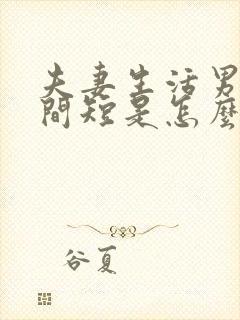 夫妻生活男
間短是怎麼
谷夏